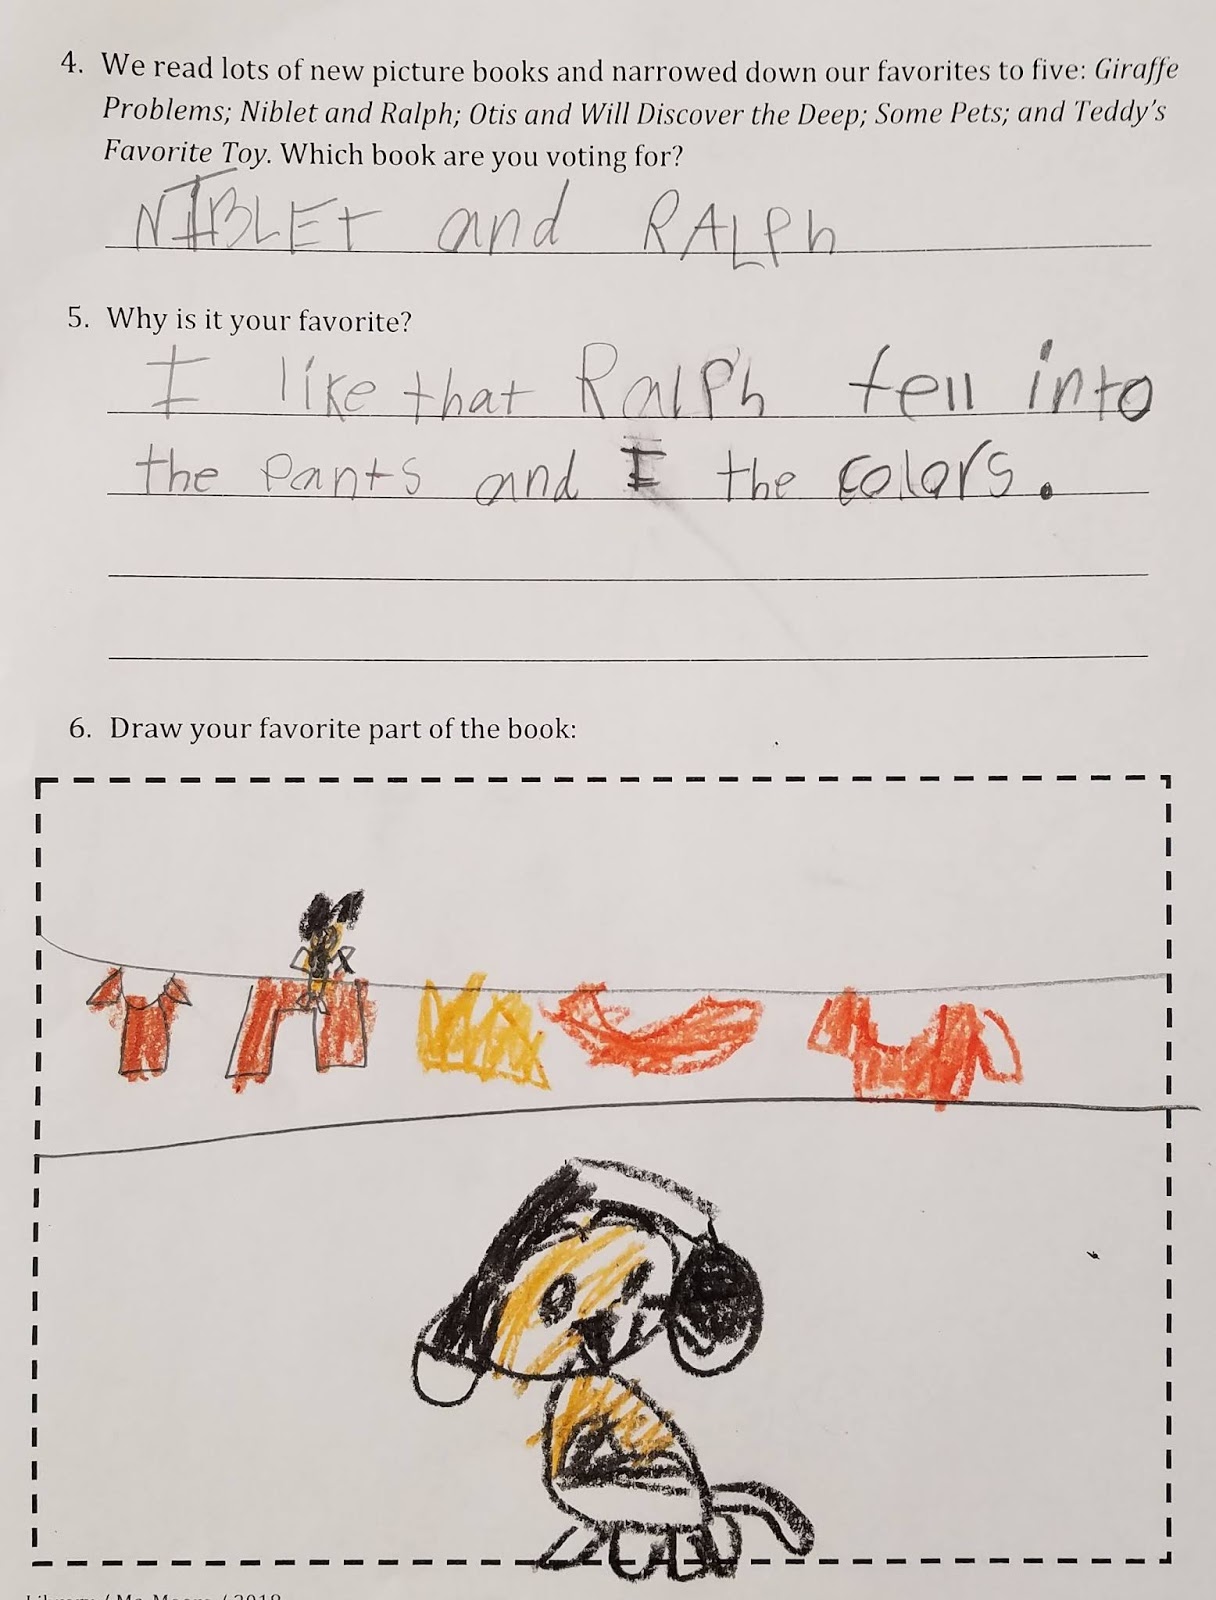 4. We read lots of new picture books and narrowed down our favorites to five: Giraffe
Problems; Niblet and Ralph; Otis and Will Discover the Deep; Some Pets; and Teddy's
Favorite Toy. Which book are you voting for?
NIBLET and RALPh
5. Why is it your favorite?
I like that RalPh fell into
the Pants and I the colors.
6. Draw your favorite part of the book:
Library / Ms. / 2018